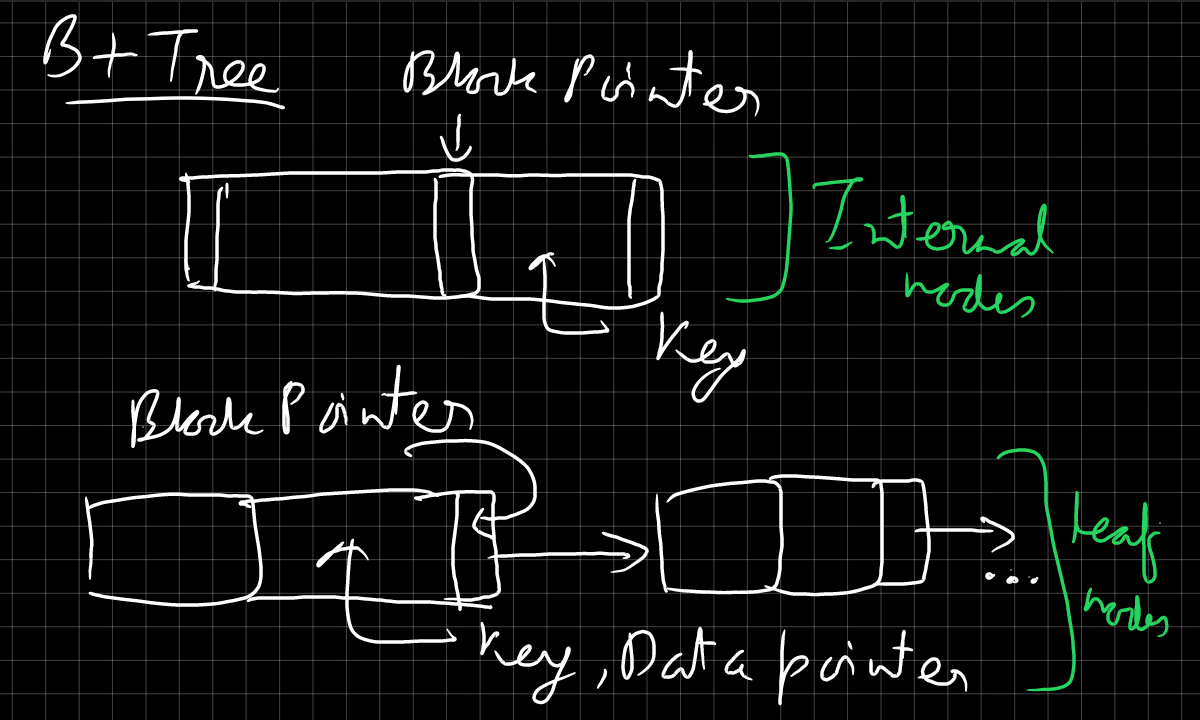 B+ Tree
Block Pointer
Internal
nodes
Key
Block Pointer
Leaf
nodes
...
Key, Data pointer